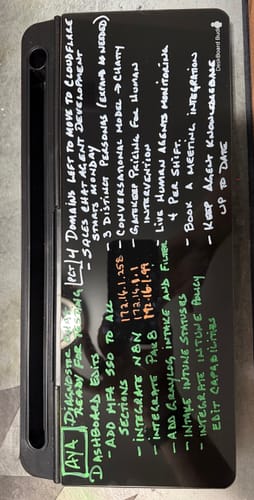 AYA
DIAGNOSTER
READY FOR TESTING
DASHBOARD EDITS
- ADD MFA SSO TO ALL
SECTIONS
- INTEGRATE N8N
- INTEGRATE PAX8
- ADD GRAYLOG INTAKE AND FILTER
- INTAKE INTUNE STATUSES
- INTEGRATE INTUNE POLICY
EDIT CAPABILITIES
172.16.1.258
172.16.1.1
192.16.1.99
PCT
4 DOMAINS LEFT TO MOVE TO CLOUDFLARE
- SALES CHAT AGENT DEVELOPMENT
STARTS MONDAY
- 3 DISTINCT PERSONAS (EXPAND AS NEEDED)
- CONVERSATIONAL MODEL → CHATTY
- GATEKEEP PRICING FOR HUMAN
INTERVENTION
- LIVE HUMAN AGENTS MONITORING
4 PER SHIFT.
- BOOK A MEETING INTEGRATION
- KEEP AGENT KNOWLEDGEABLE
UP TO DATE
DeskBoard Buddy